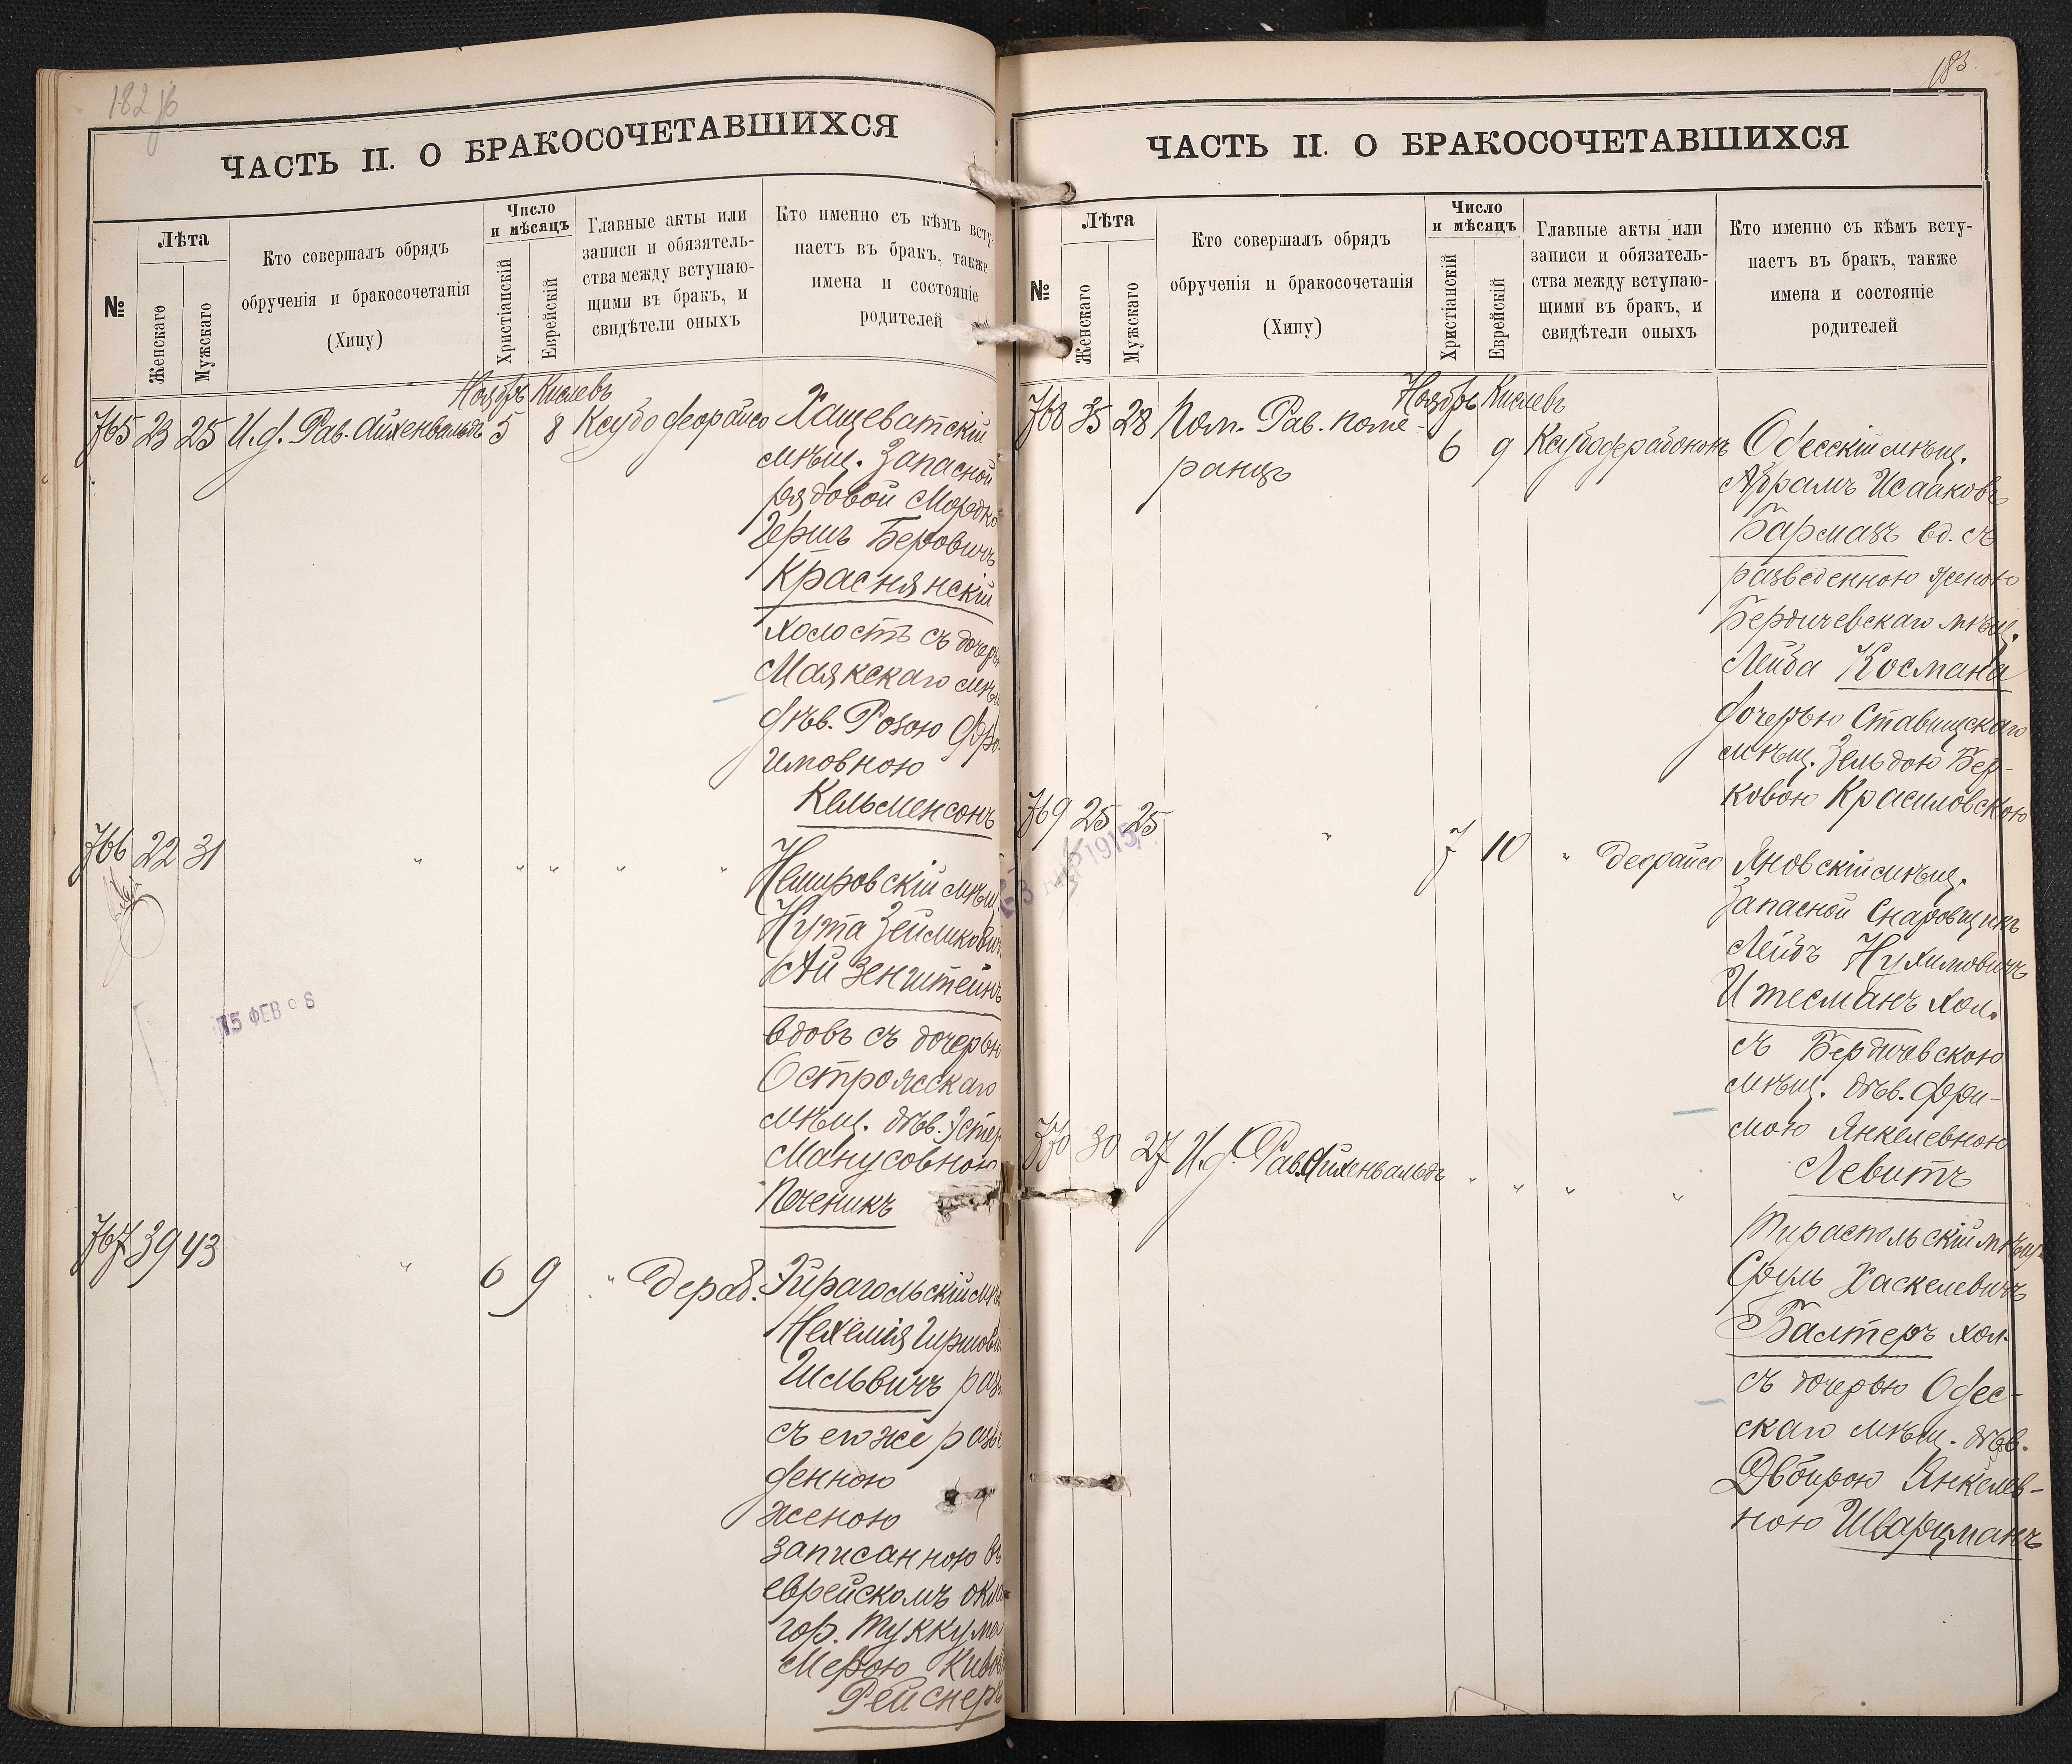 182 об
ЧАСТЬ II. О БРАКОСОЧЕТАВШИХСЯ
№
Лѣта
Женскаго
Мужскаго
Кто совершалъ обрядъ
обрученія и бракосочетанія
(Хипу)
Число
и мѣсяцъ
Христіанскій
Еврейскій
Главные акты или
записи и обязатель-
ства между вступаю-
щими въ бракъ, и
свидѣтели оныхъ
Кто именно съ кѣмъ всту-
паетъ въ бракъ, также
имена и состояніе
родителей
Ноябрь Кислевъ
765 23 25 И.д. Рав. Айхенвальдъ 5 8
Хащеватскій
мѣщ. Запасной
рядовой Мордко
Гершъ Беровичъ
Краснянскій
холостъ съ дочерью
Маякскаго мѣщ
дѣв. Розою Фро-
имовною
Кельменсонъ
766 22 31 " " " " "
Немировскій мѣщ
Нута Зейликович
Айзенштейнъ
вдовъ съ дочерью
мѣщ. дѣв. Эстер
Манусовною
Печеникъ
15 ФЕВ
767 39 43 " 6 9 "
Эйрагольскій мѣ
Нехемія Гиршов
Шльвичъ раз
съ его же разве
денною
женою
записанною въ
еврейскомъ
гор. Туккума
Мерою
Рейснеръ
183.
ЧАСТЬ II. О БРАКОСОЧЕТАВШИХСЯ
№
Лѣта
Женскаго
Мужскаго
Кто совершалъ обрядъ
обрученія и бракосочетанія
(Хипу)
Число
и мѣсяцъ
Христіанскій
Еврейскій
Главные акты или
записи и обязатель-
ства между вступаю-
щими въ бракъ, и
свидѣтели оныхъ
Кто именно съ кѣмъ всту-
паетъ въ бракъ, также
имена и состояніе
родителей
Ноябрь Кислевъ
768 35 28 Пом. Рав. Поме-
ранцъ
6 9
Одесскій мѣщ.
Абрамъ Исааковъ
Бармазъ вд. съ
разведенною женою
Бердичевскаго мѣщ.
Лейба Космана
дочерью Ставищскаго
мѣщ. Зельдою Бер-
ковою Красиловскою
769 25 25 " 7 10 "
1915
Яновскій мѣщ.
Запасной
Лейбъ Нухимовичъ
Итесманъ хол.
съ Бердичевскою
мѣщ. дѣв. Фри-
мою Янкелевною
Левитъ
770 30 27 И.д. Рав. Айхенвальдъ " " " "
Тираспольскій мѣщ.
Сруль Хаскелевичъ
Балтеръ хол.
съ дочерью Одес-
скаго мѣщ. дѣв.
Двойрою Янкелев-
ною Шварцманъ